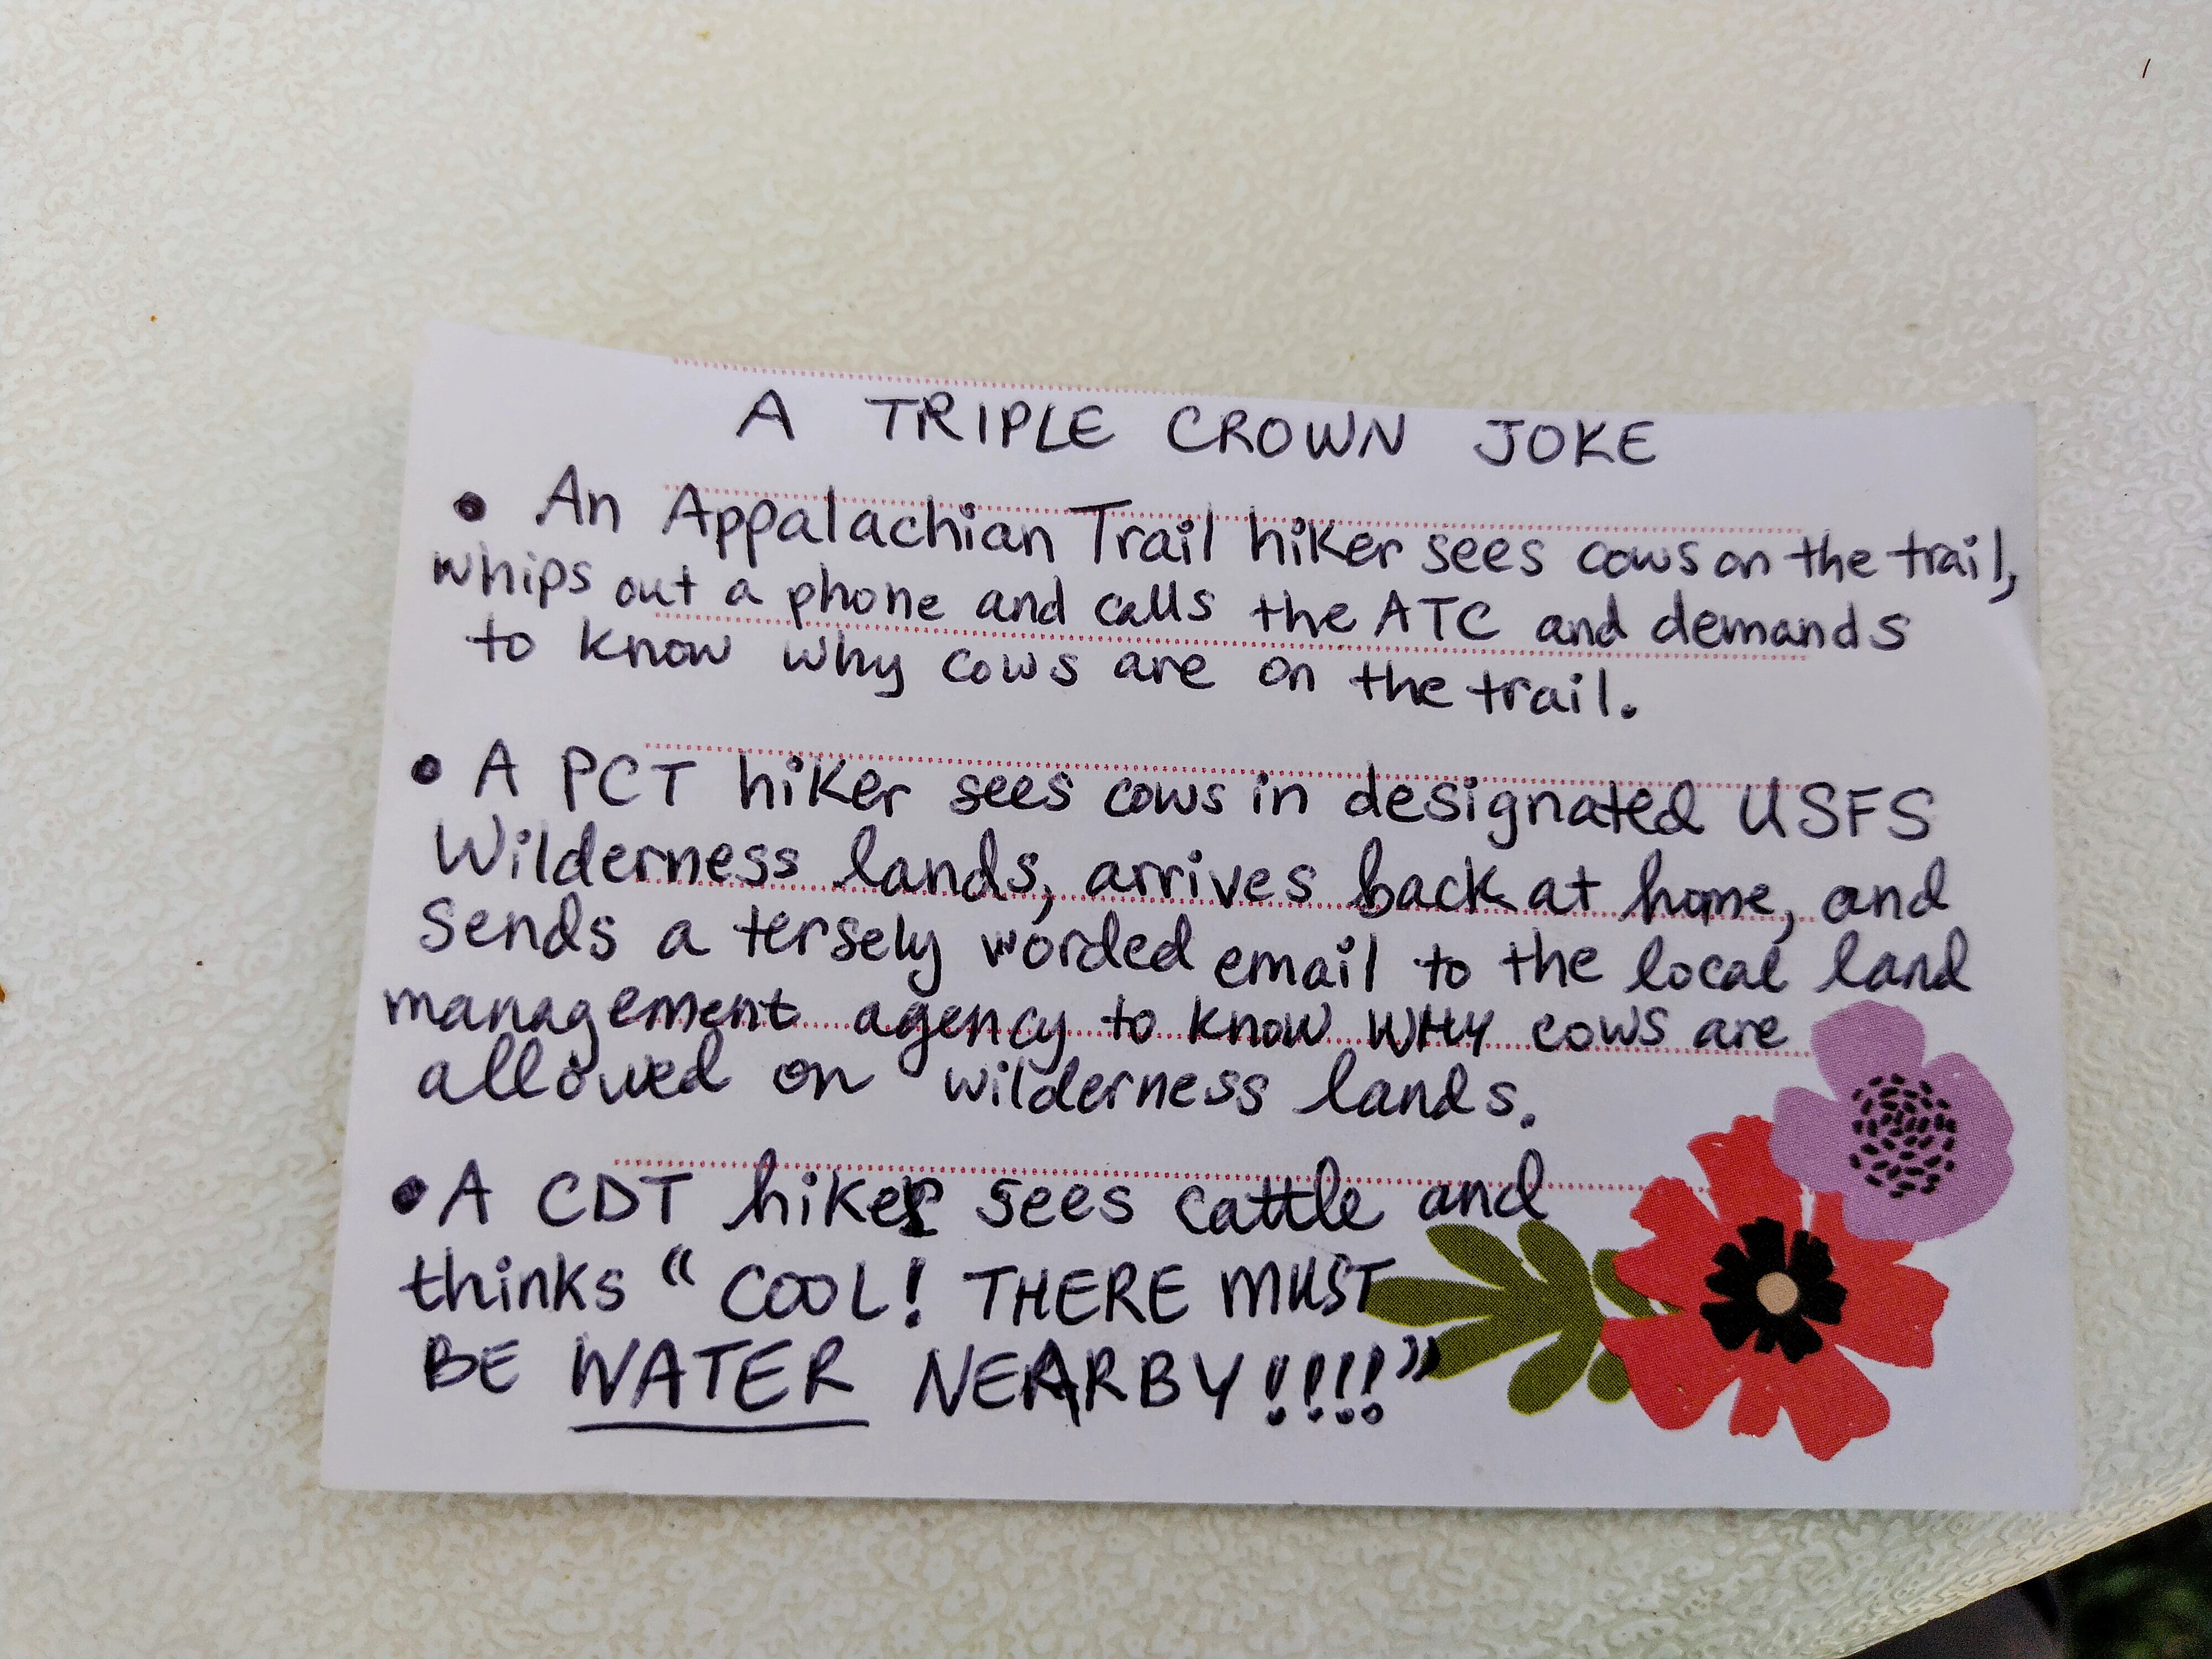 A TRIPLE CROWN JOKE
• An Appalachian Trail hiker sees cows on the trail,
whips out a phone and calls the ATC and demands
to know why cows are on the trail.
• A PCT hiker sees cows in designated USFS
Wilderness lands, arrives back at home, and
sends a tersely worded email to the local land
management agency to know WHY cows are
allowed on wilderness lands.
• A CDT hiker sees cattle and
thinks “COOL! THERE MUST
BE WATER NEARBY!!!!”